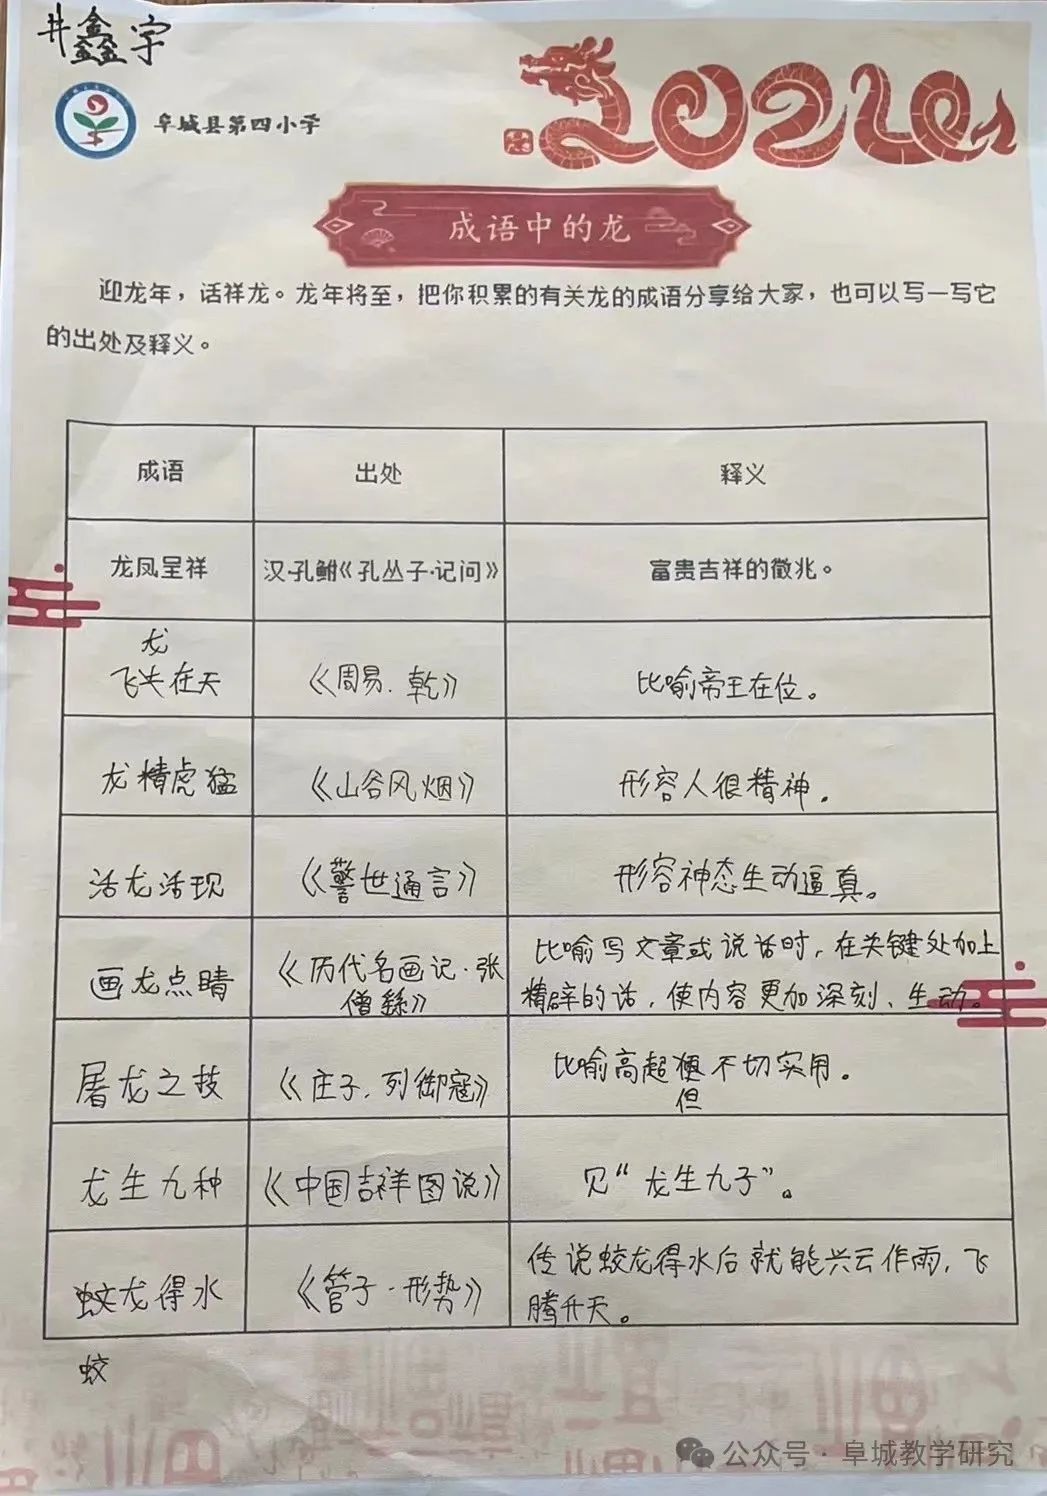 井鑫宇
阜城县第四小学
2024
成语中的龙
迎龙年，话祥龙。龙年将至，把你积累的有关龙的成语分享给大家，也可以写一写它
的出处及释义。
成语 出处 释义
龙凤呈祥 汉·孔鲋《孔丛子·记问》 富贵吉祥的徵兆。
龙
飞在天 《周易.乾》 比喻帝王在位。
龙精虎猛 《山谷风烟》 形容人很精神.
活龙活现 《警世通言》 形容神态生动逼真。
画龙点睛 《历代名画记·张
僧繇》
比喻写文章或说话时,在关键处加上
精辟的话,使内容更加深刻、生动。
屠龙之技 《庄子.列御寇》 比喻高超 不切实用。
但
龙生九种 《中国吉祥图说》 见“龙生九子”。
蛟龙得水 《管子·形势》
传说蛟龙得水后就能兴云作雨,飞
腾升天。
蛟
公众号·阜城教学研究